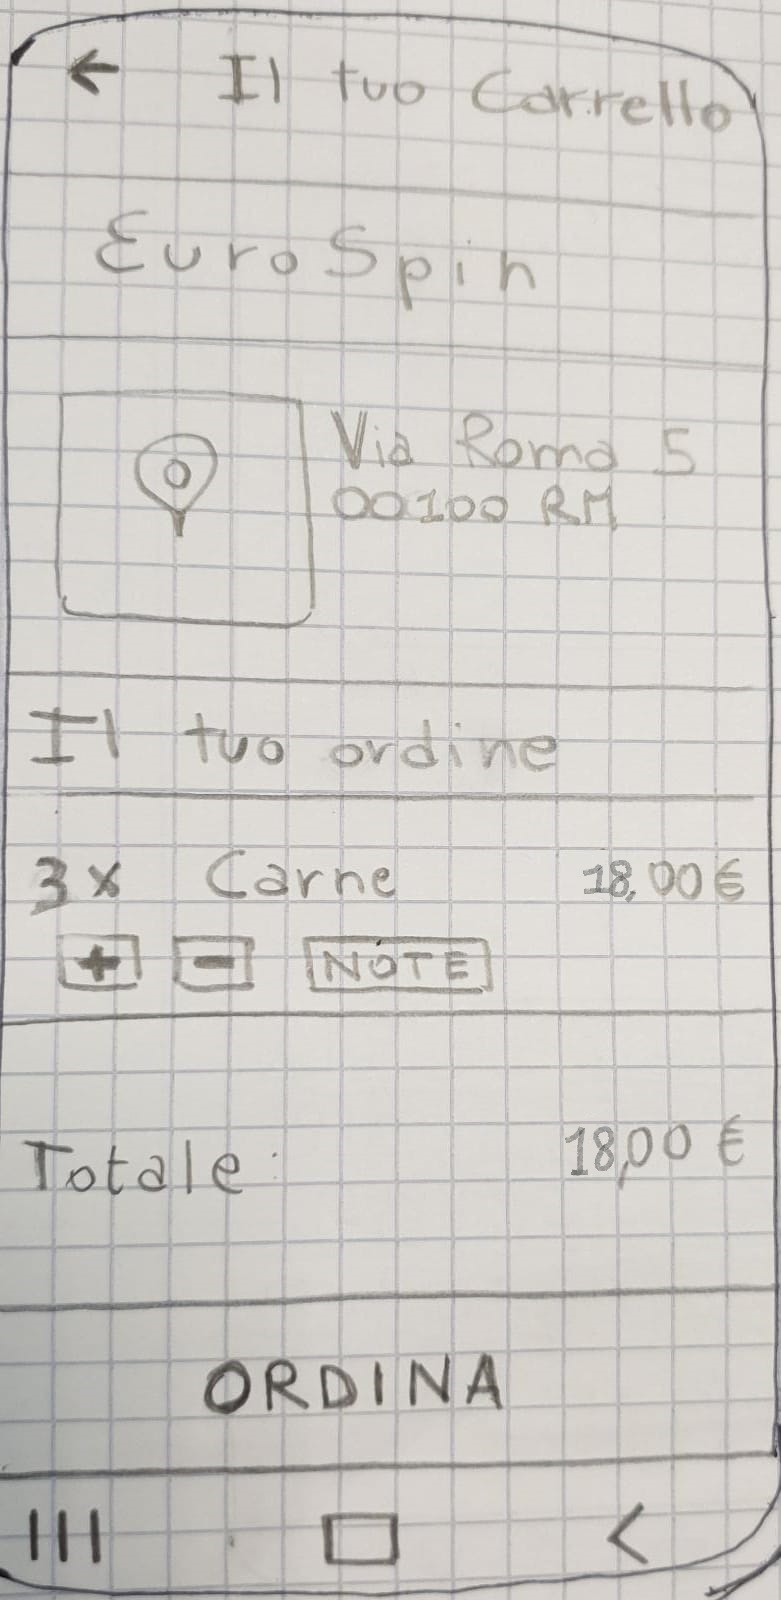 ← Il tuo Carrello
EuroSpin
Via Roma 5
00100 RM
Il tuo ordine
3x Carne 18,00 €
+ - NOTE
Totale: 18,00 €
ORDINA